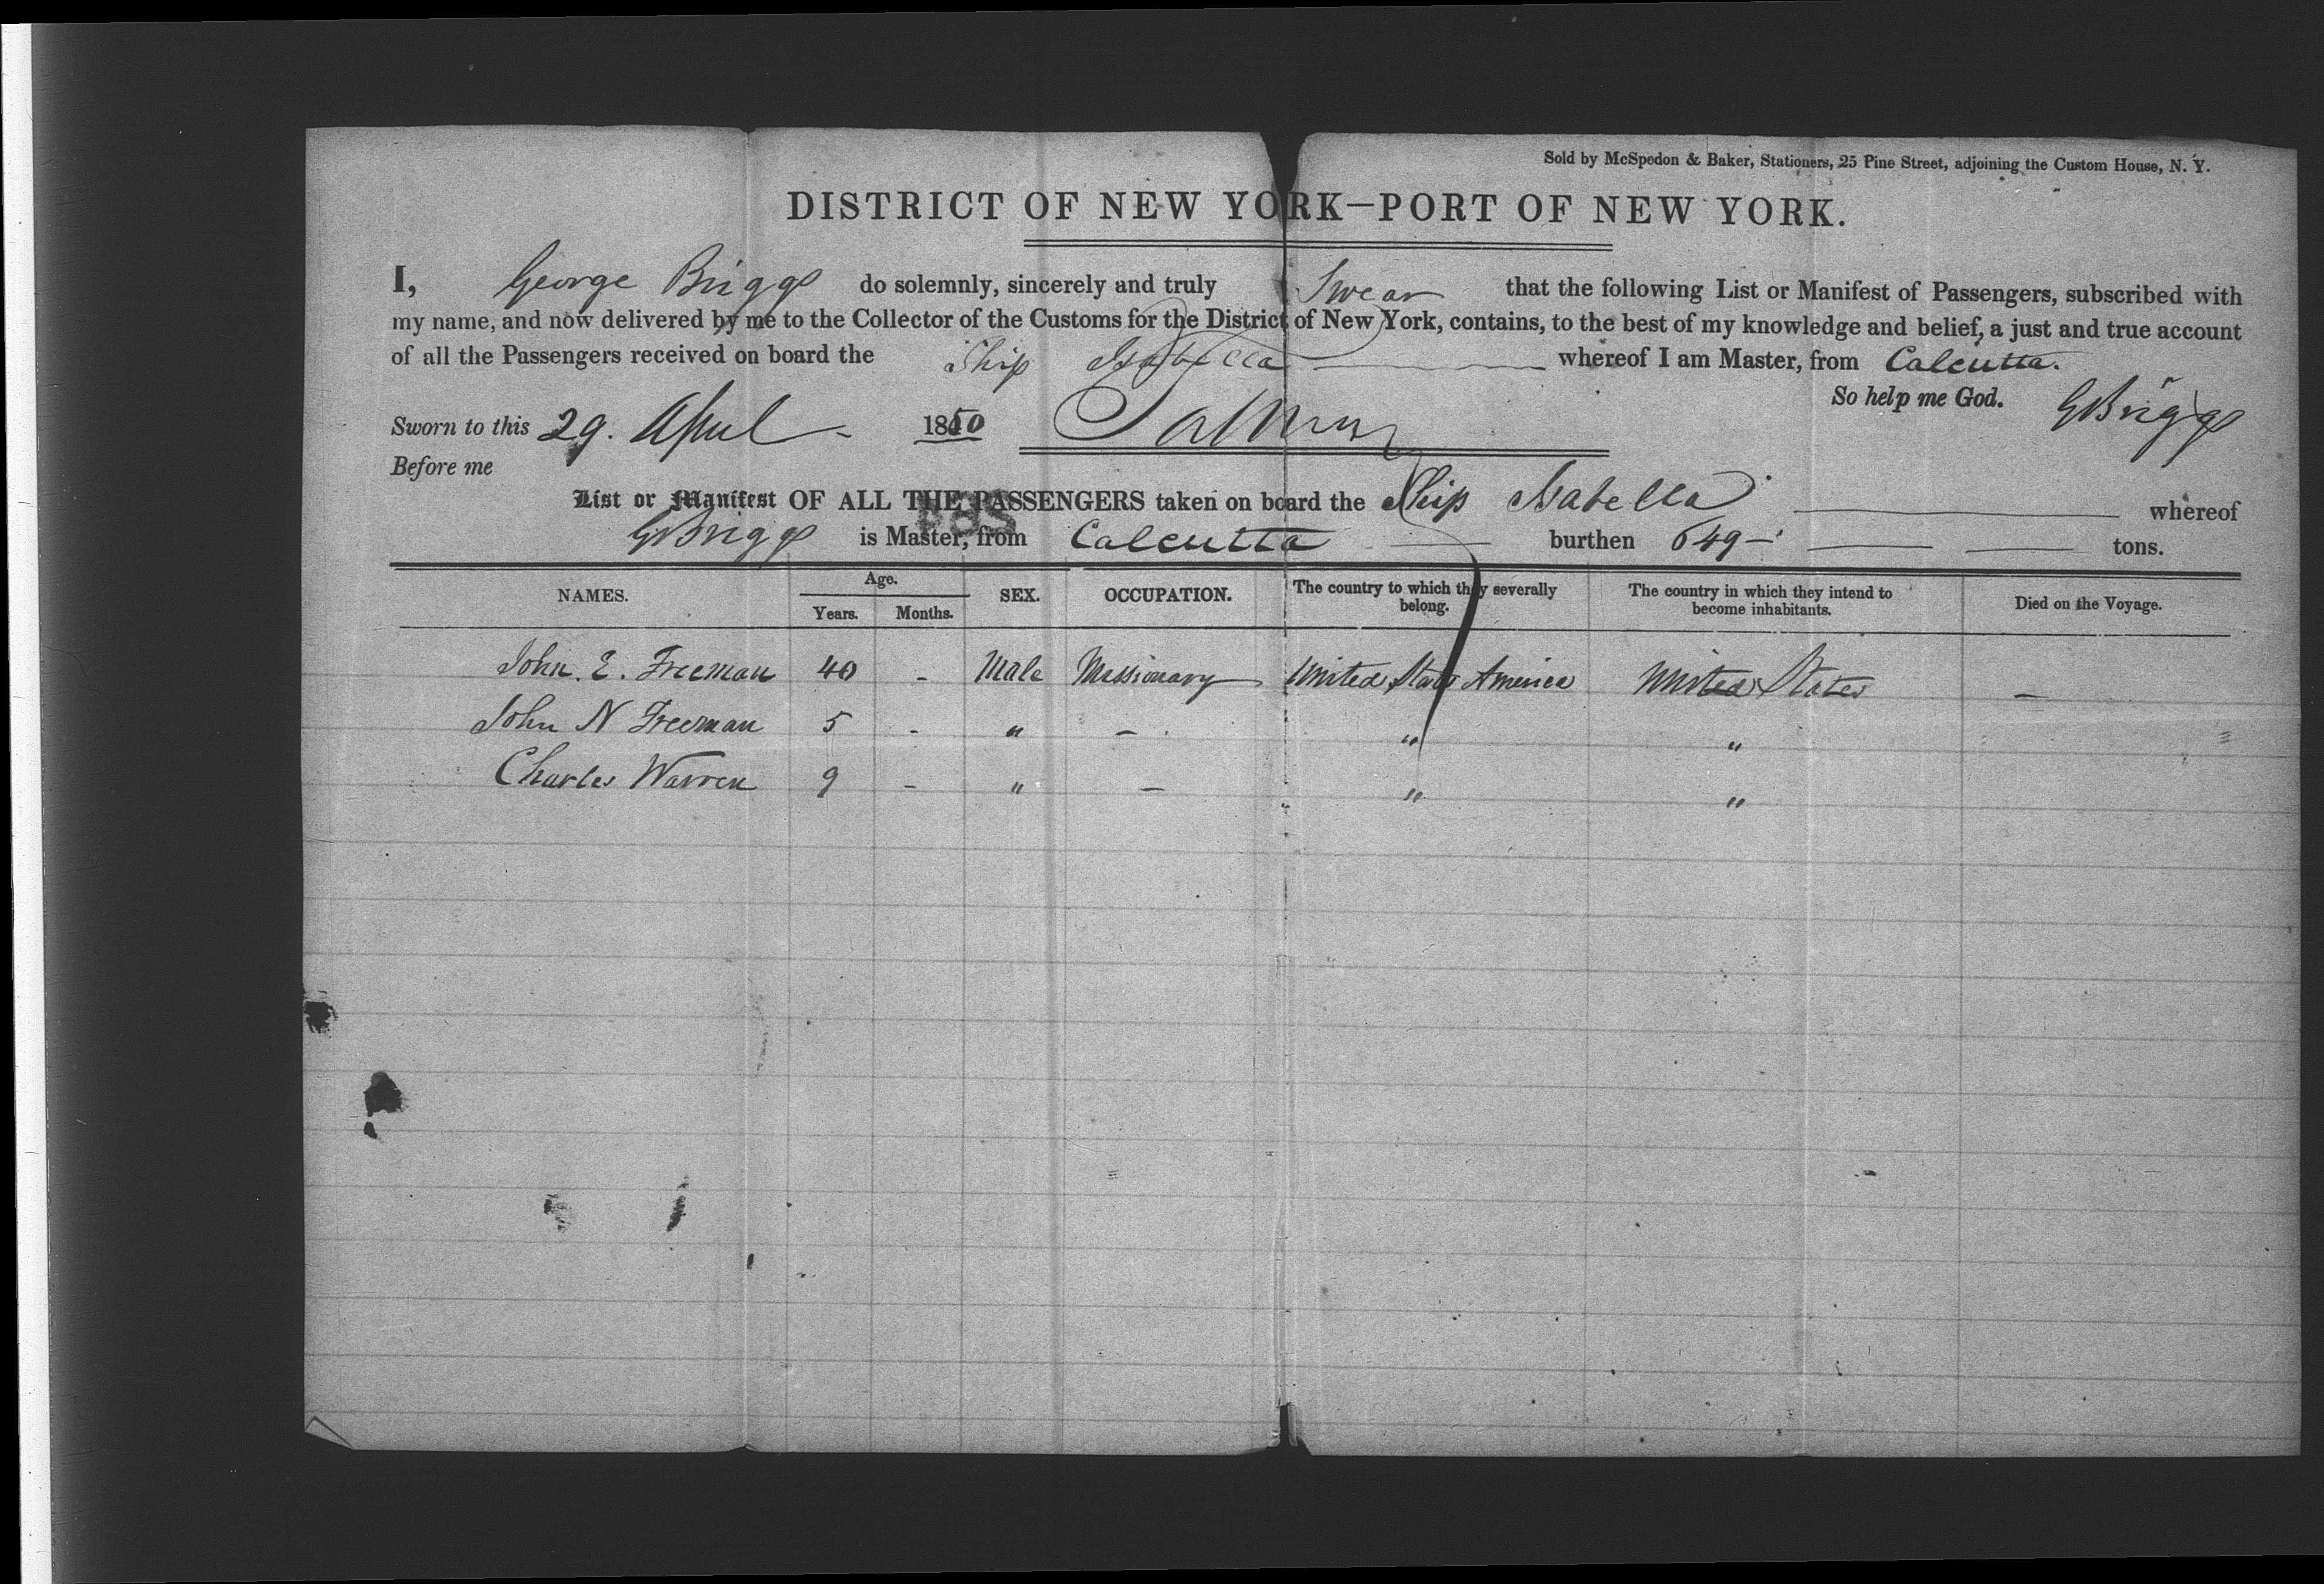 Sold by McSpedon & Baker, Stationers, 25 Pine Street, adjoining the Custom House, N. Y.
DISTRICT OF NEW YORK—PORT OF NEW YORK.
I, George Briggs do solemnly, sincerely and truly Swear that the following List or Manifest of Passengers, subscribed with
my name, and now delivered by me to the Collector of the Customs for the District of New York, contains, to the best of my knowledge and belief, a just and true account
of all the Passengers received on board the Ship Isabella whereof I am Master, from Calcutta.
So help me God. G Briggs
Sworn to this 29. April 1850
Before me
List or Manifest OF ALL THE PASSENGERS taken on board the Ship Isabella whereof
G Briggs is Master, from Calcutta burthen 649 tons.
NAMES. Age. Years. Months. SEX. OCCUPATION. The country to which they severally belong. The country in which they intend to become inhabitants. Died on the Voyage.
John. E. Freeman 40 - Male Missionary United States America United States -
John N Freeman 5 - " - " "
Charles Warren 9 - " - " "